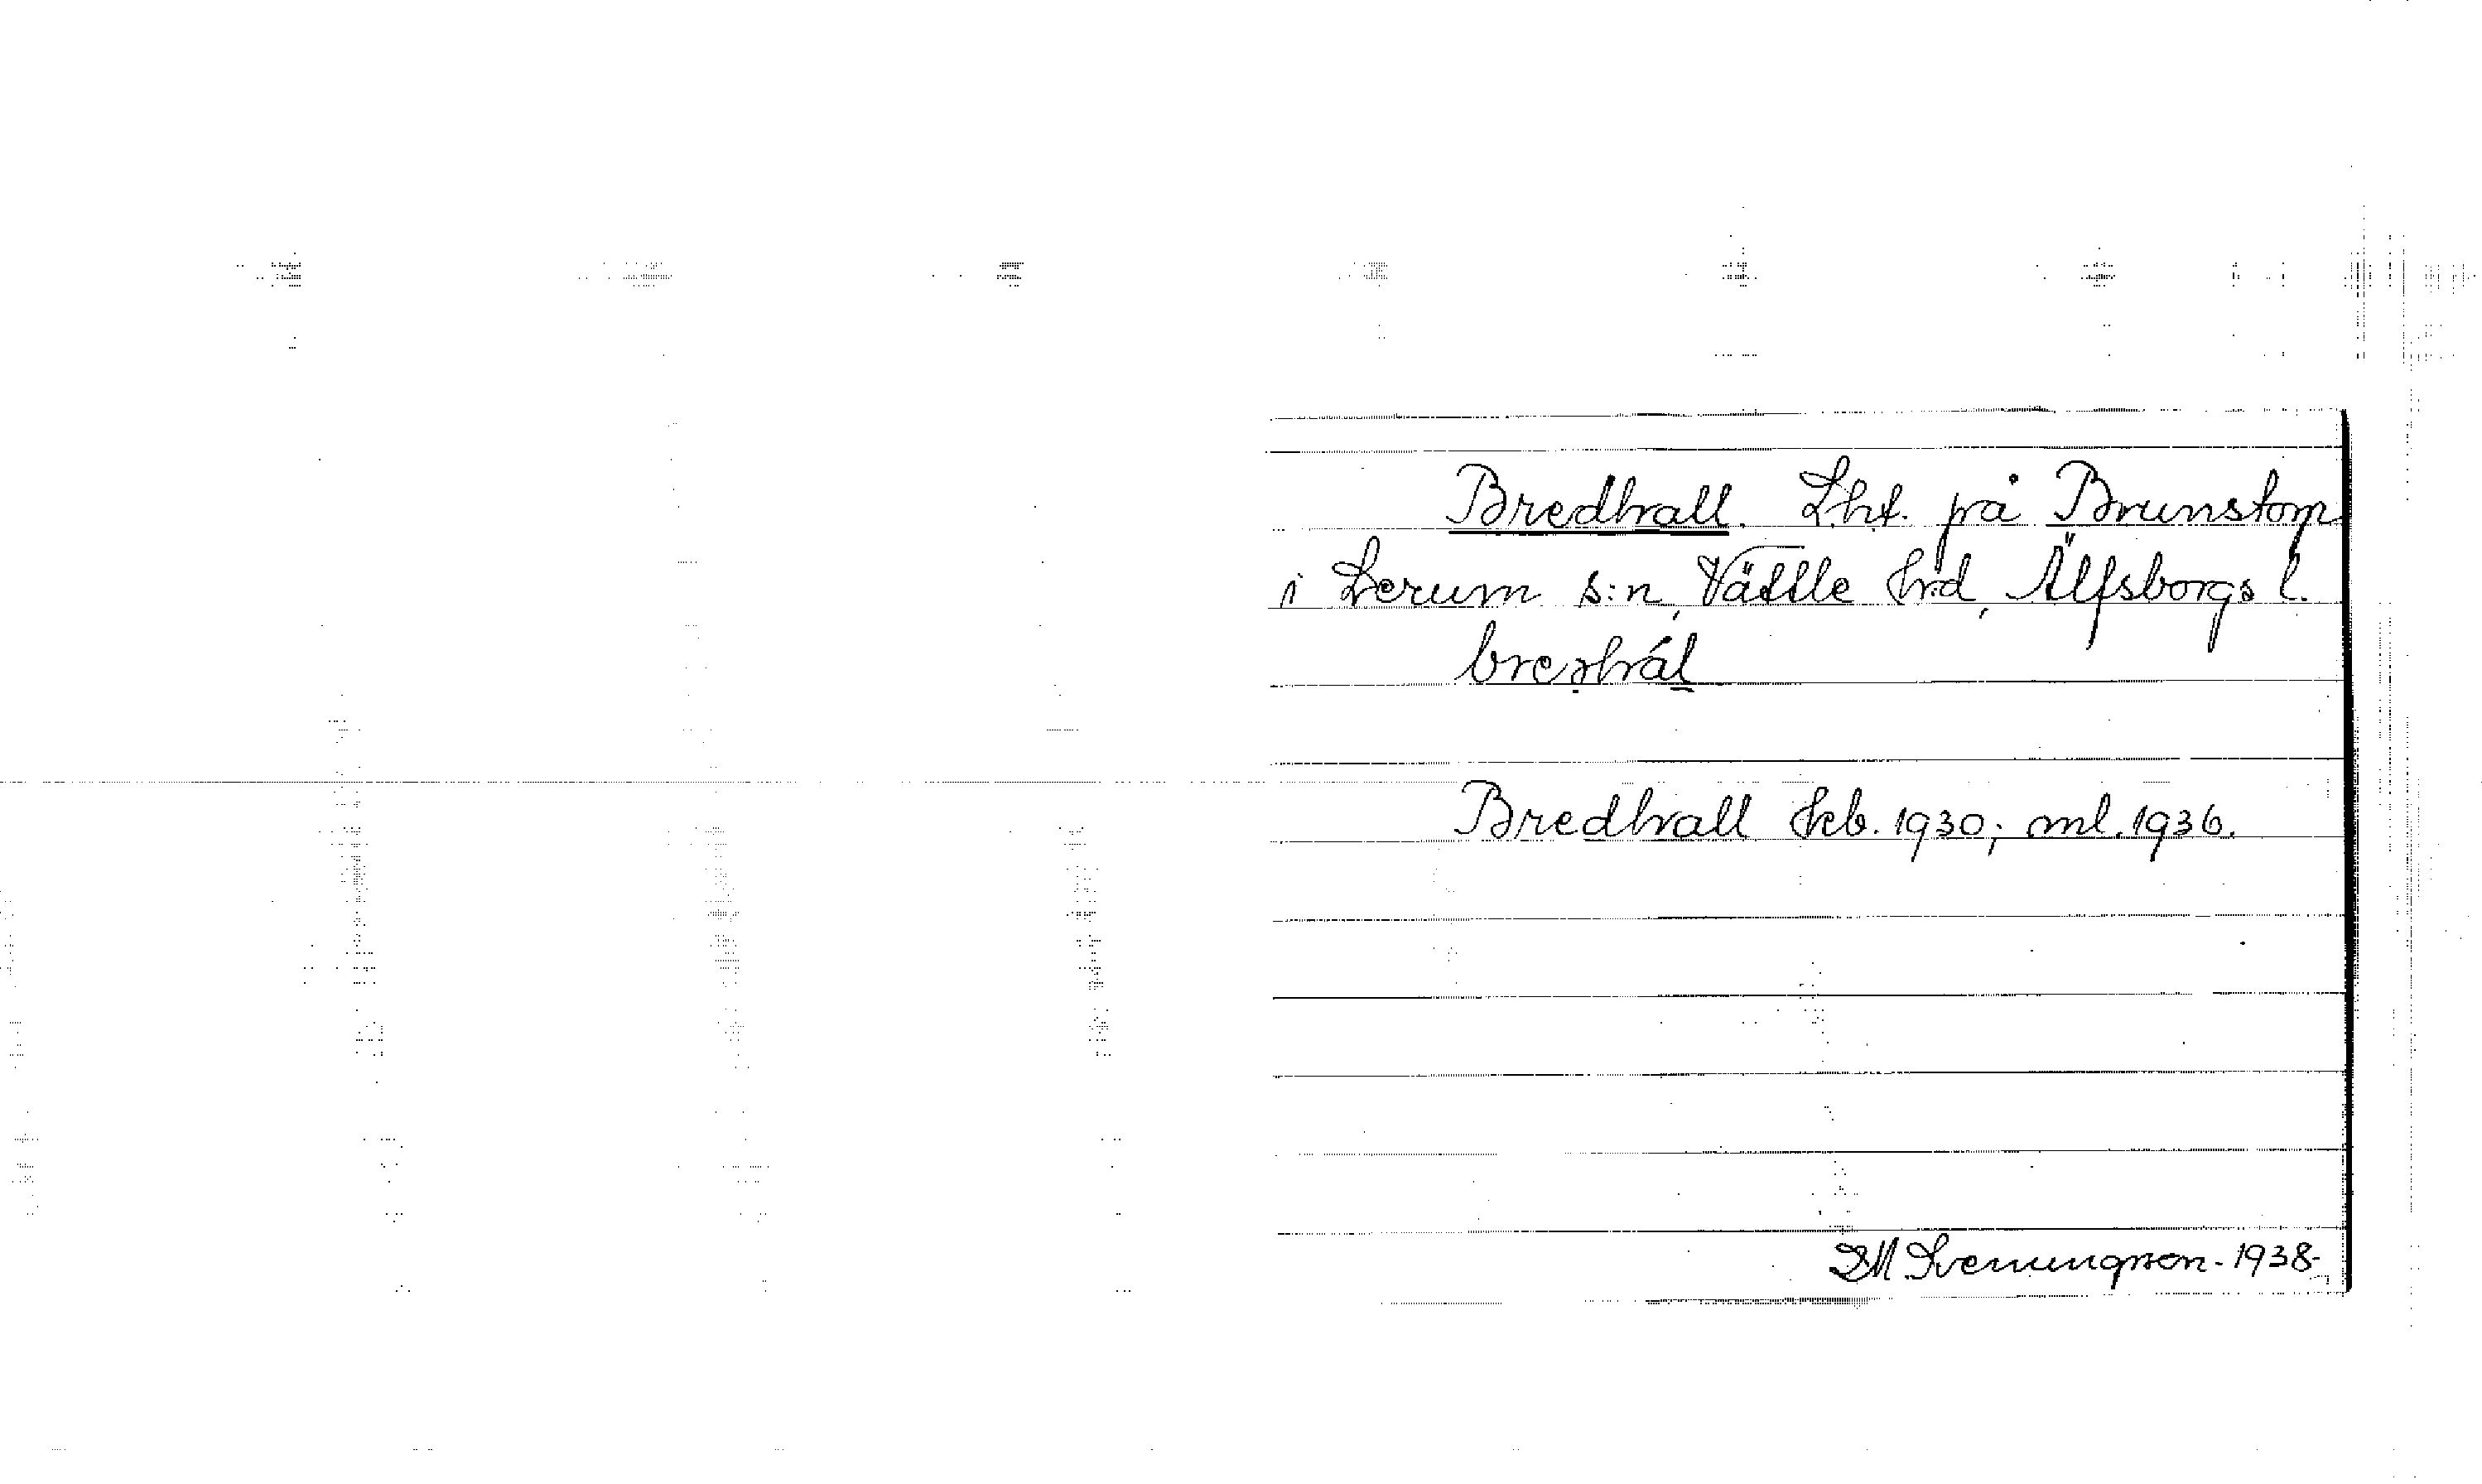 Bredhvall. Lht. på Brunstorp
i Lerum s:n, Vättle hrd, Älfsborgs l.
Bredhvall Jrb. 1930; ml. 1936.
DM Svenungsson - 1938-